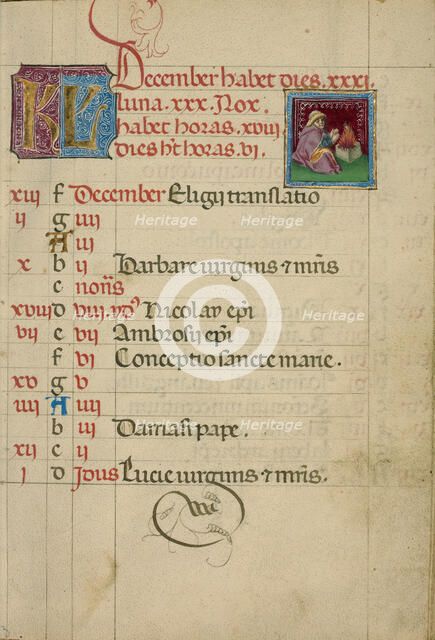 KL December habet dies. xxxi.
luna. xxx. Nox
habet horas. xviii.
dies ht horas. vi.
xiii f December Eligii translatio
ii g iiii
A iii
x b ii Barbare virginis & mris
c nonis
xviii d viii Nicolay epi
vii e vii Ambrosii epi
f vi Conceptio sancte marie.
xv g v
iiii A iiii
b iii Damasi pape.
xii c ii
i d Idus Lucie virginis & mris.
Heritage Heritage
Heritage Heritage
Heritage Heritage